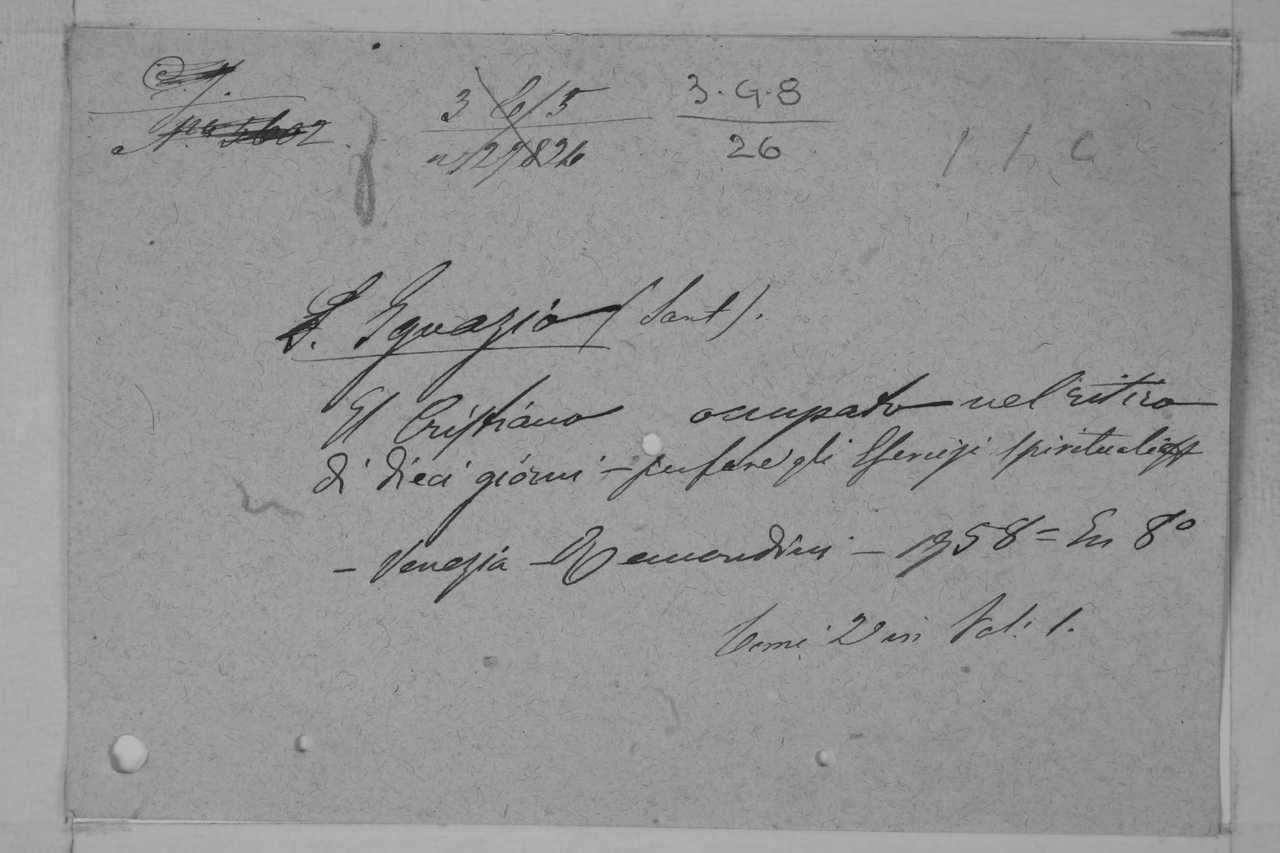 3 G/5
3.G.8
26
S. Ignazio (Sant).
Il Cristiano occupato nel ritiro
di dieci giorni - per fare gli Esercizi spirituali
- Venezia - Remondini - 1758 = In 8º
Tomi 2 in Vol: 1.